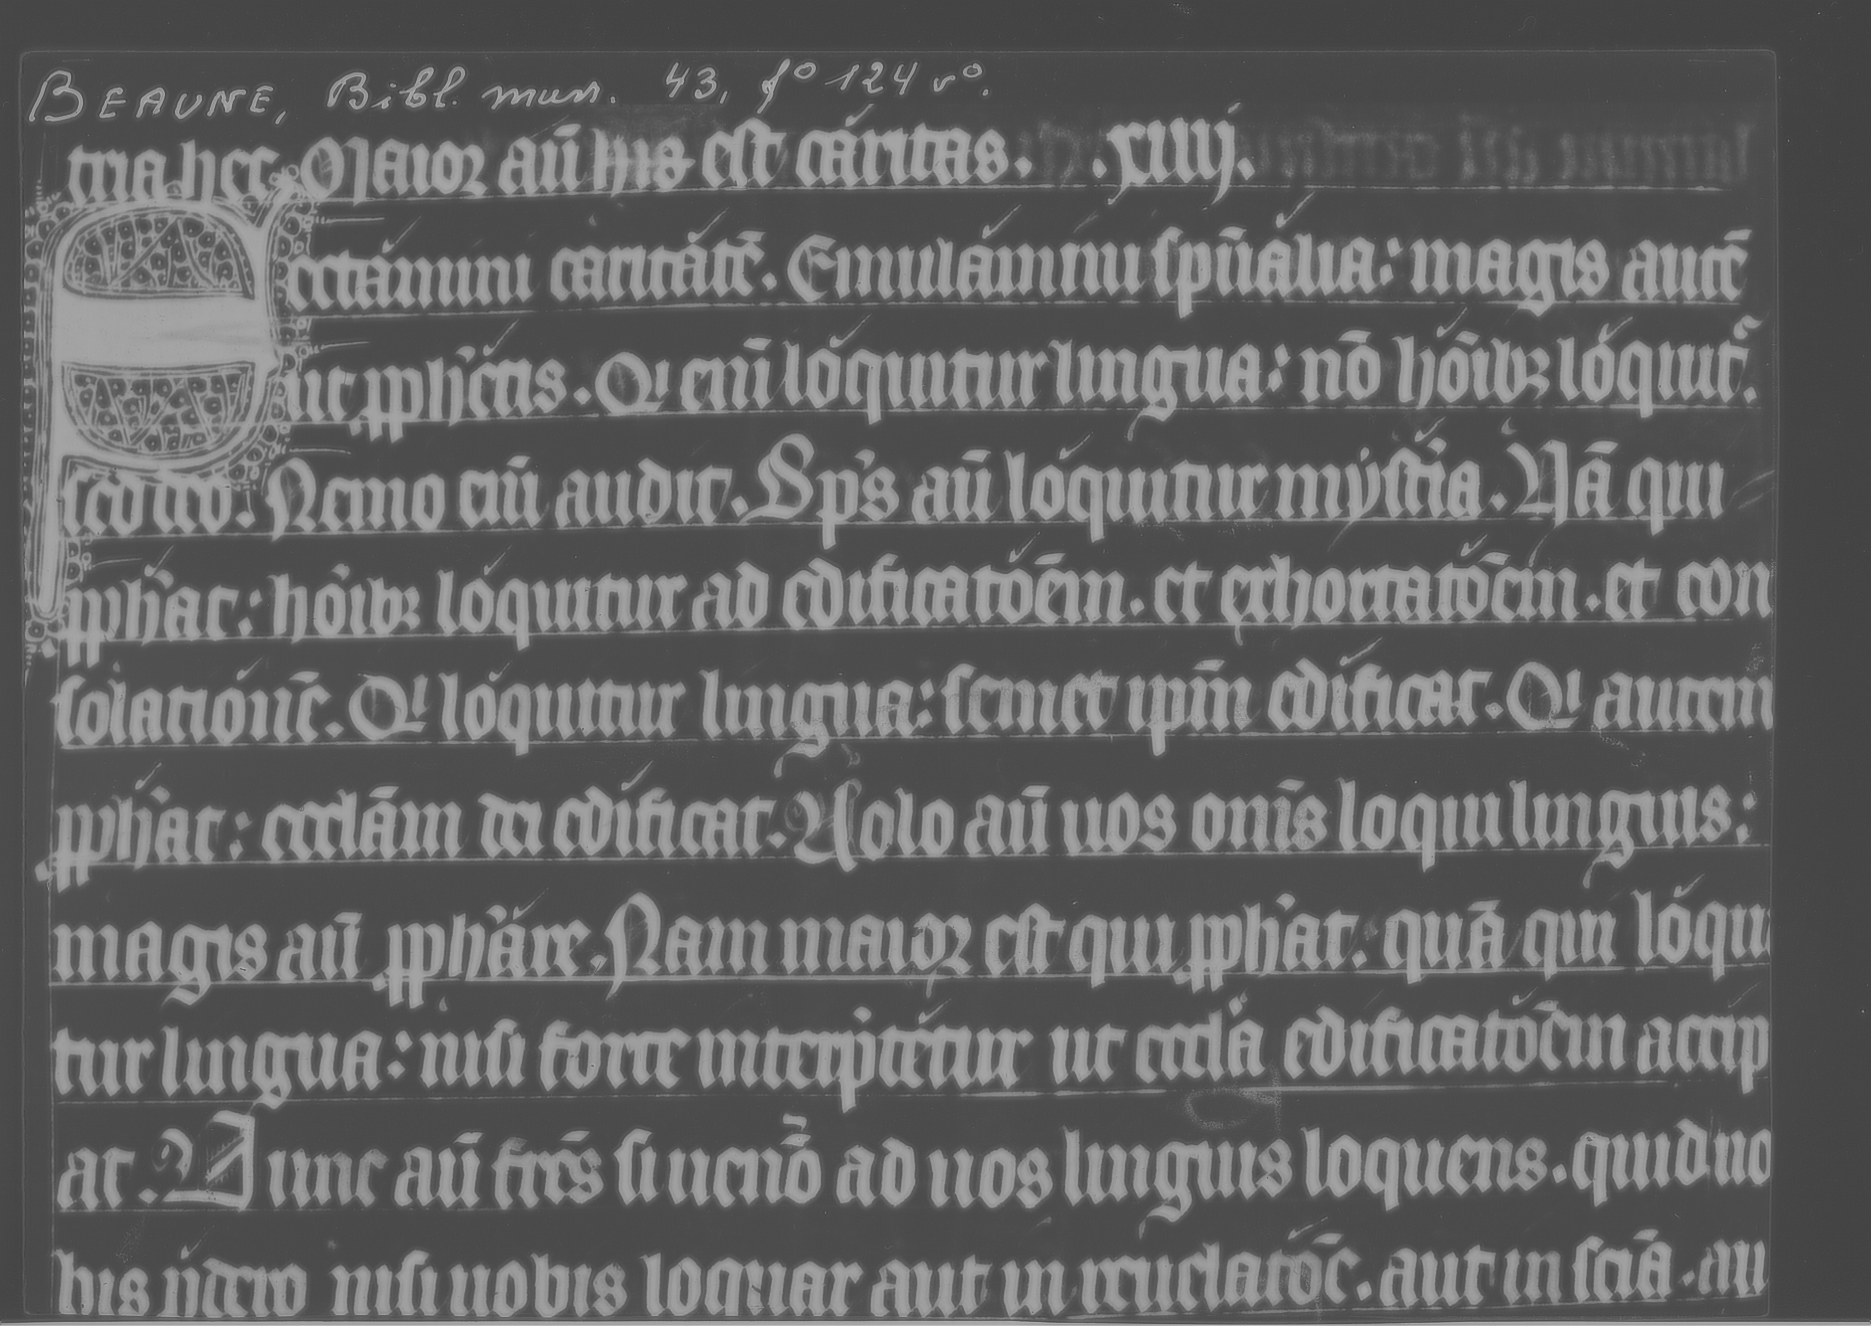 BEAUNE, Bibl. mun. 43, fº 124 vº.
tria hec. Maior aū his est cáritas. .xiiij.
ectámini caritátē. Emulámini spūália: magis autē
ut ꝓph'étis. Qi enī lóquitur lingua: nō hóib; lóquit᷑.
sed deo. Nemo eni᷑ audit. Sp's aū lóquitur mýstīa. Nā qui
ꝓph'at: hóib; lóquitur ad edificatōēm. et exhortatōēm. et con
solatiónē. Qi lóquitur lingua: semet ipm̄ edíficat. Qi autem
ꝓph'at: eccl̄am dei edíficat. Uolo aū uos om̄s loqui linguis:
magis aū ꝓph'áre. Nam maior est qui ꝓph'at: quā qui lóqui
tur lingua: nisi forte interp̄tétur ut eccl̄a edificatōēm accip
at. Nunc aū fr̄es si uen̄o ad uos linguis loquens. quid uo
bis ꝓdero nisi uobis loquar aut in reuelatōē. aut in sciā. au